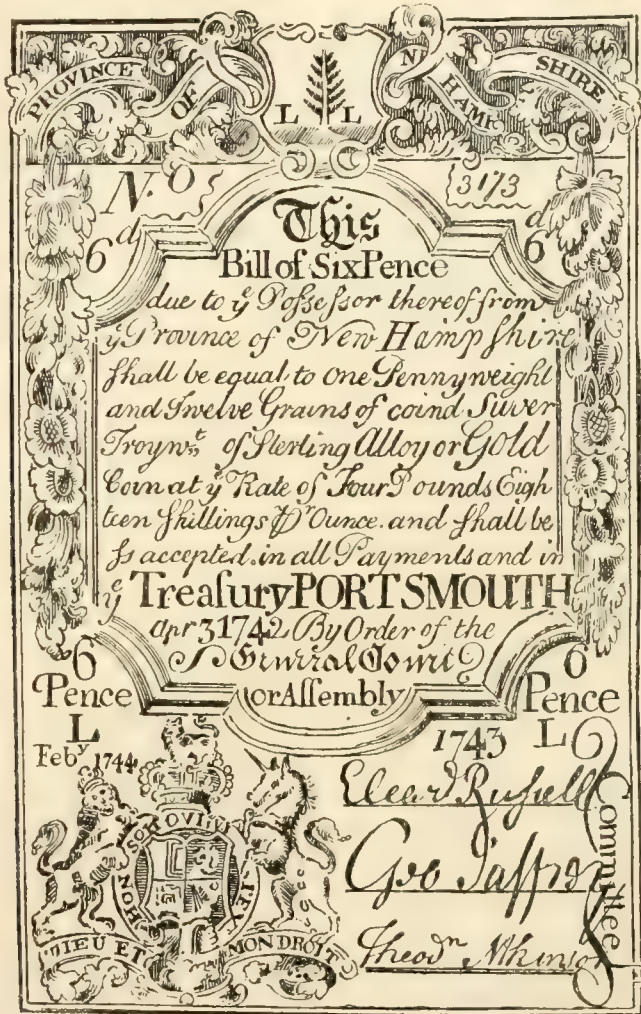 PROVINCE OF NEW HAMP SHIRE
L L
No 3173
6d 6d
This
Bill of Six Pence
due to ye Poſseſsor thereof from
ye Province of New Hampſhire
ſhall be equal to One Pennyweight
and Twelve Grains of coind Silver
Troy wt. of Sterling Alloy or Gold
Coin at ye Rate of Four Pounds Eigh
teen ſhillings Pr Ounce. and ſhall be
ſs accepted. in all Payments and in
ye Treaſury PORTSMOUTH
Apr 3 1742 By Order of the
General Court
or Aſſembly
6 Pence L
6 Pence L
Feby 1744
1743
HONI SOIT QUI MAL Y PENSE
DIEU ET MON DROIT
Eleaʳ Ruſsell
Geo Jaffrey
Theodr Atkinson
Committee